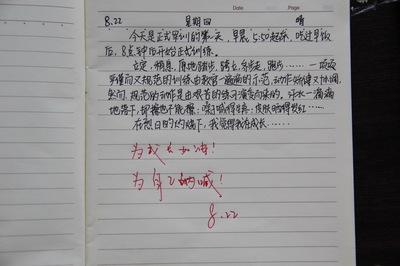 Date
Page
8.22 星期四 晴
今天是正式军训的第一天，早晨5:50起床，吃过早饭
后，8点钟后开始正式训练。
立定，稍息，原地踏步，跨立，齐步走，跑步……一项项
严谨而又规范的训练由教官一遍遍的示范，动作矫健又协调。
然而，规范的动作是由艰苦的练习演变而来的。汗水一滴滴
地落下，却擦也不能擦；嗓门喊得生疼，皮肤晒得发红……
在烈日的灼烧下，我觉得我在成长……
为成长加油！
为自己呐喊！
8.22